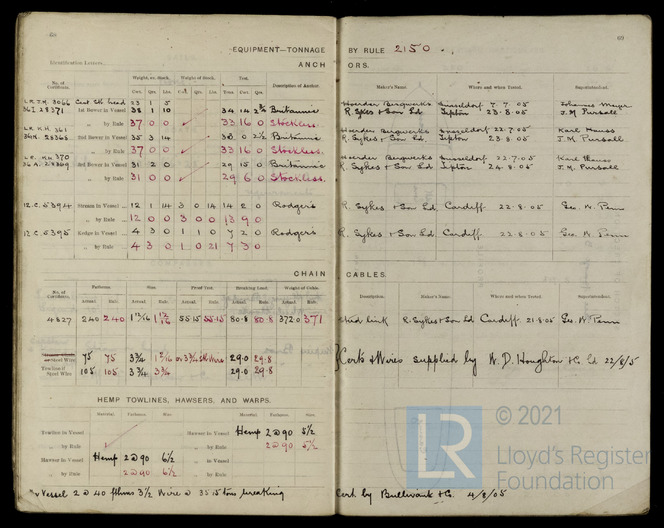 68
69
EQUIPMENT—TONNAGE BY RULE 2150.
Identification Letters
ANCHORS.
No. of Certificate. Weight, ex. Stock. Weight of Stock. Test. Description of Anchor. Maker's Name. Where and when Tested. Superintendent.
Cwt. Qrs. Lbs. Cwt. Qrs. Lbs. Tons Cwt. Qrs.
1st Bower in Vessel 38 1 10 34 14 Britannic R. Sykes & Son Ld Tipton 23.8.05 J.M. Pursall
„ by Rule 37 0 0 33 16 0 Stockless.
L.R. K.H. 361 Hoerder Bergwerks Dusseldorf 22.7.05 Karl Hauss
2nd Bower in Vessel 35 3 14 Britannic R. Sykes & Son Ld. Tipton 23.8.05 J.M. Pursall
„ by Rule 37 0 0 33 16 0 Stockless.
K.H. 370 Hoerder Bergwerks Dusseldorf 22.7.05 Karl Hauss
3rd Bower in Vessel 31 2 0 29 15 0 Britannic R. Sykes & Son Ld Tipton 24.8.05 J.M. Pursall
„ by Rule 31 0 0 29 6 0 Stockless.
12.C.5394 Stream in Vessel 12 1 14 3 0 14 14 2 0 Rodgers R. Sykes & Son Ld Cardiff. 22.8.05 Geo. W. Penn
„ by Rule 12 0 0 3 0 0 13 9 0
12.C.5395 Kedge in Vessel 4 3 0 1 1 0 7 2 0 Rodgers R. Sykes & Son Ld. Cardiff. 22.8.05 Geo. W. Penn
„ by Rule 4 3 0 1 0 21 7 3 0
CHAIN CABLES.
No. of Certificate. Fathoms. Size. Proof Test. Breaking Load. Weight of Cable. Description. Maker's Name. Where and when Tested. Superintendent.
Actual. Rule. Actual. Rule. Actual. Rule. Actual. Rule. Actual. Rule.
4827 240 240 1 15/16 55.15 55.15 80.8 80.8 372.0 371 stud link R. Sykes & Son Ld Cardiff. 21.8.05 Geo. W. Penn
or Steel Wire 75 75 3¾ 1 5/16 or 3¾ Stl Wire 29.0 29.8 Certs & Wires supplied by W.D. Houghton & Co. Ld 22/8/5
Towline if Steel Wire 105 105 3¾ 3¾ 29.0 29.8
HEMP TOWLINES, HAWSERS, AND WARPS.
Material. Fathoms. Size. Material. Fathoms. Size.
Towline in Vessel Hawser in Vessel Hemp 2@90 5½
„ by Rule „ by Rule 2@90 5½
Hawser in Vessel Hemp 2@90 6½ „ in Vessel
„ by Rule 2@90 6½ „ by Rule
Vessel 2@40 fthms 3½ Wire @ 35.15 tons breaking Cert. by Bullivant & Co. 4/8/05
LR © 2021
Lloyd's Register
Foundation